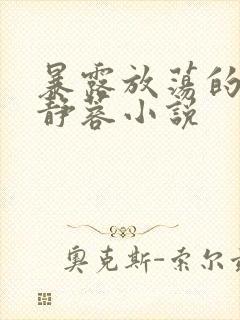 暴露放荡的
静蓉小说
奥克斯-索尔